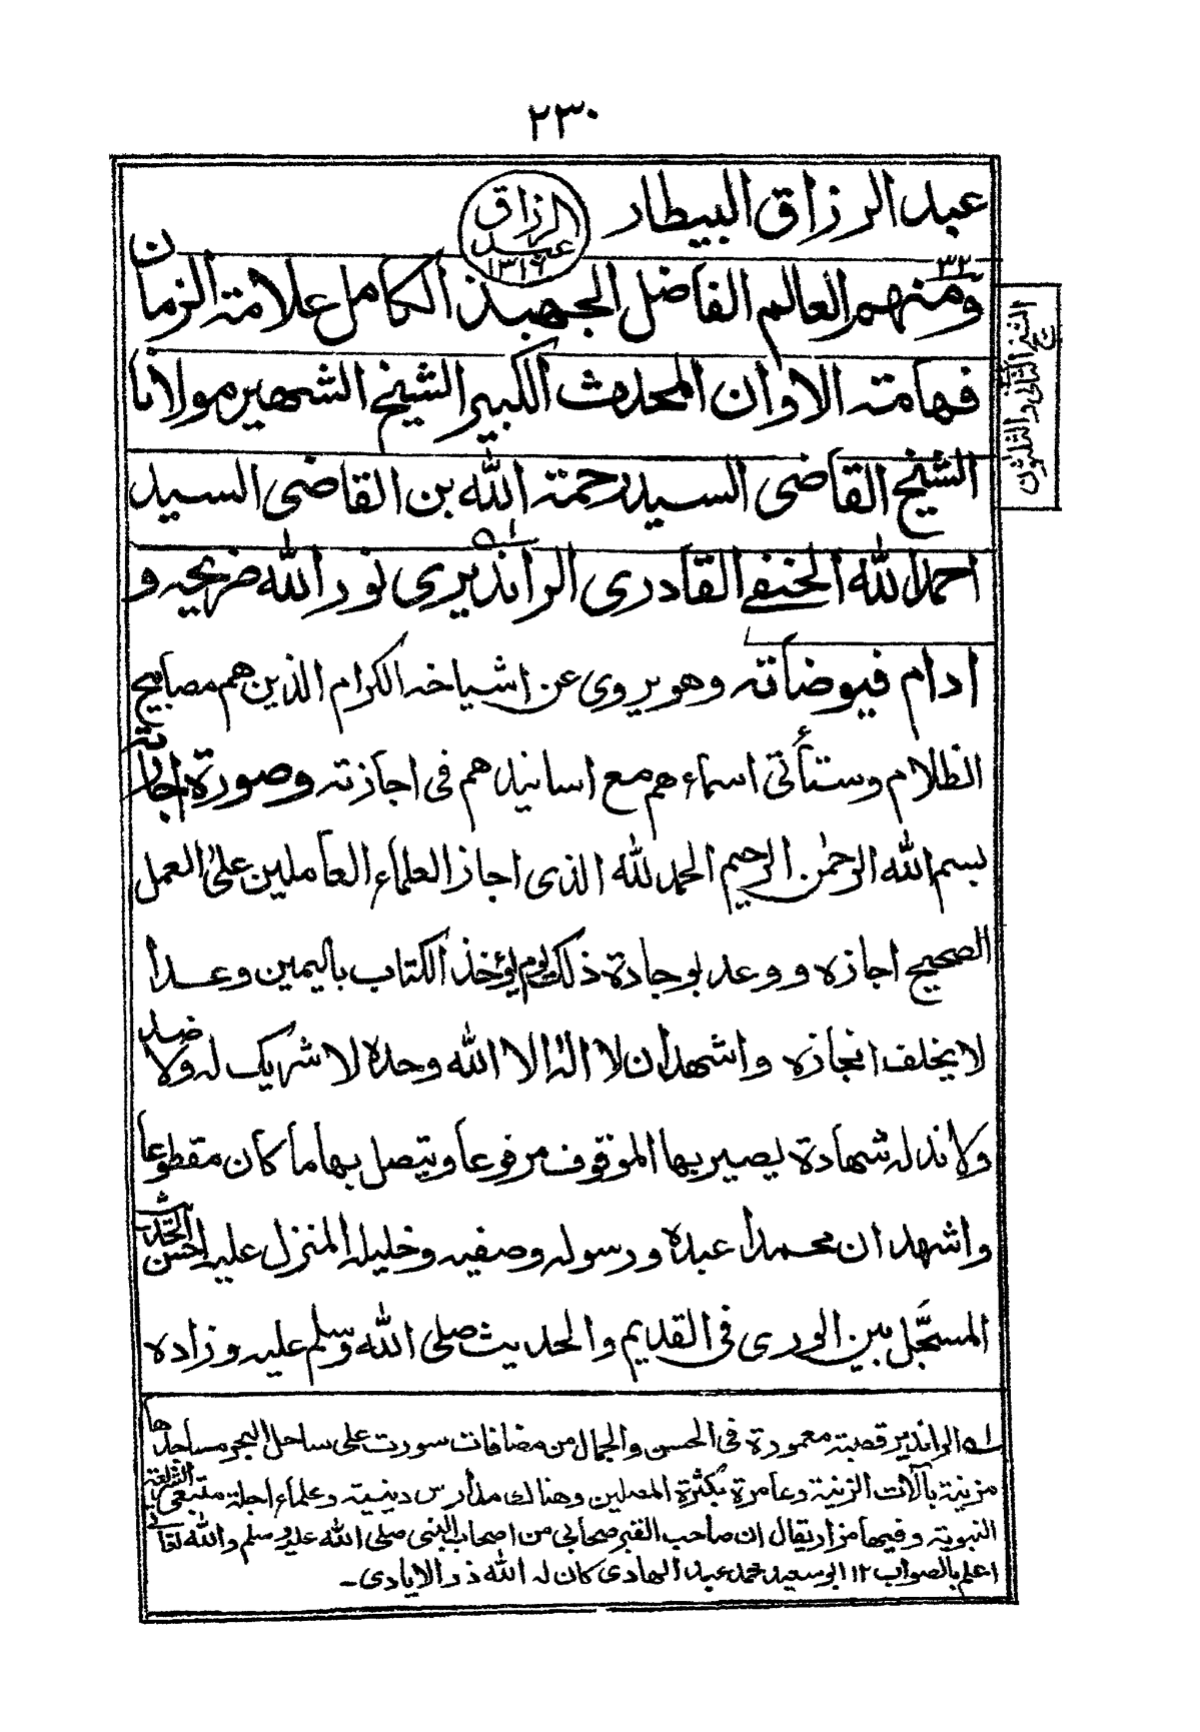 ٢٣٠
عبد الرزاق البيطار
الرزاق
عبد
١٣١٦
٣٢
ومنهم العالم الفاضل الجهبذ الكامل علامة الزمان
فهامة الاوان المحدث الكبير الشيخ الشهير مولانا
الشيخ القاضى السيد رحمة الله بن القاضى السيد
احمد الله الحنفي القادرى الراندیرى نور الله ضريحه و
ادام فيوضاته وهو يروى عن اشياخه الكرام الذين هم مصابيح
الظلام وستأتى اسماءهم مع اسانيدهم فى اجازته وصورة اجازته
بسم الله الرحمٰن الرحيم الحمد لله الذى اجاز العلماء العاملين على العمل
الصحيح اجازه ووعد بوجادة ذلك يوم يؤخذ الكتاب باليمين وعدا
لا يخلف انجازه واشهد ان لا اله الا الله وحده لا شريك له ولا ضد
ولا ند له شهادة يصير بها الموقوف مرفوعا ويتصل بها ما كان مقطوعا
واشهد ان محمدا عبده ورسوله وصفيه وخليله المنزل عليه احسن الحديث
المسجَّل بين الورى فى القديم والحديث صلى الله وسلم عليه وزاده
الشيخ الثانى والثلثون
له الراندير قصبة معمورة فى الحسن والجمال من مضافات سورت على ساحل البحر مساجدها
مزينة بآلات الزينة وعامرة بكثرة المصلين وهناك مدارس دينية وعلماء اجلة متبعى الشريعة
النبوية وفيها مزار يقال ان صاحب القبر صحابى من اصحاب النبى صلى الله عليه وسلم والله تعالى
اعلم بالصواب ١٢ ابو سعيد محمد عبد الهادى كان له الله ذو الايادى ـ